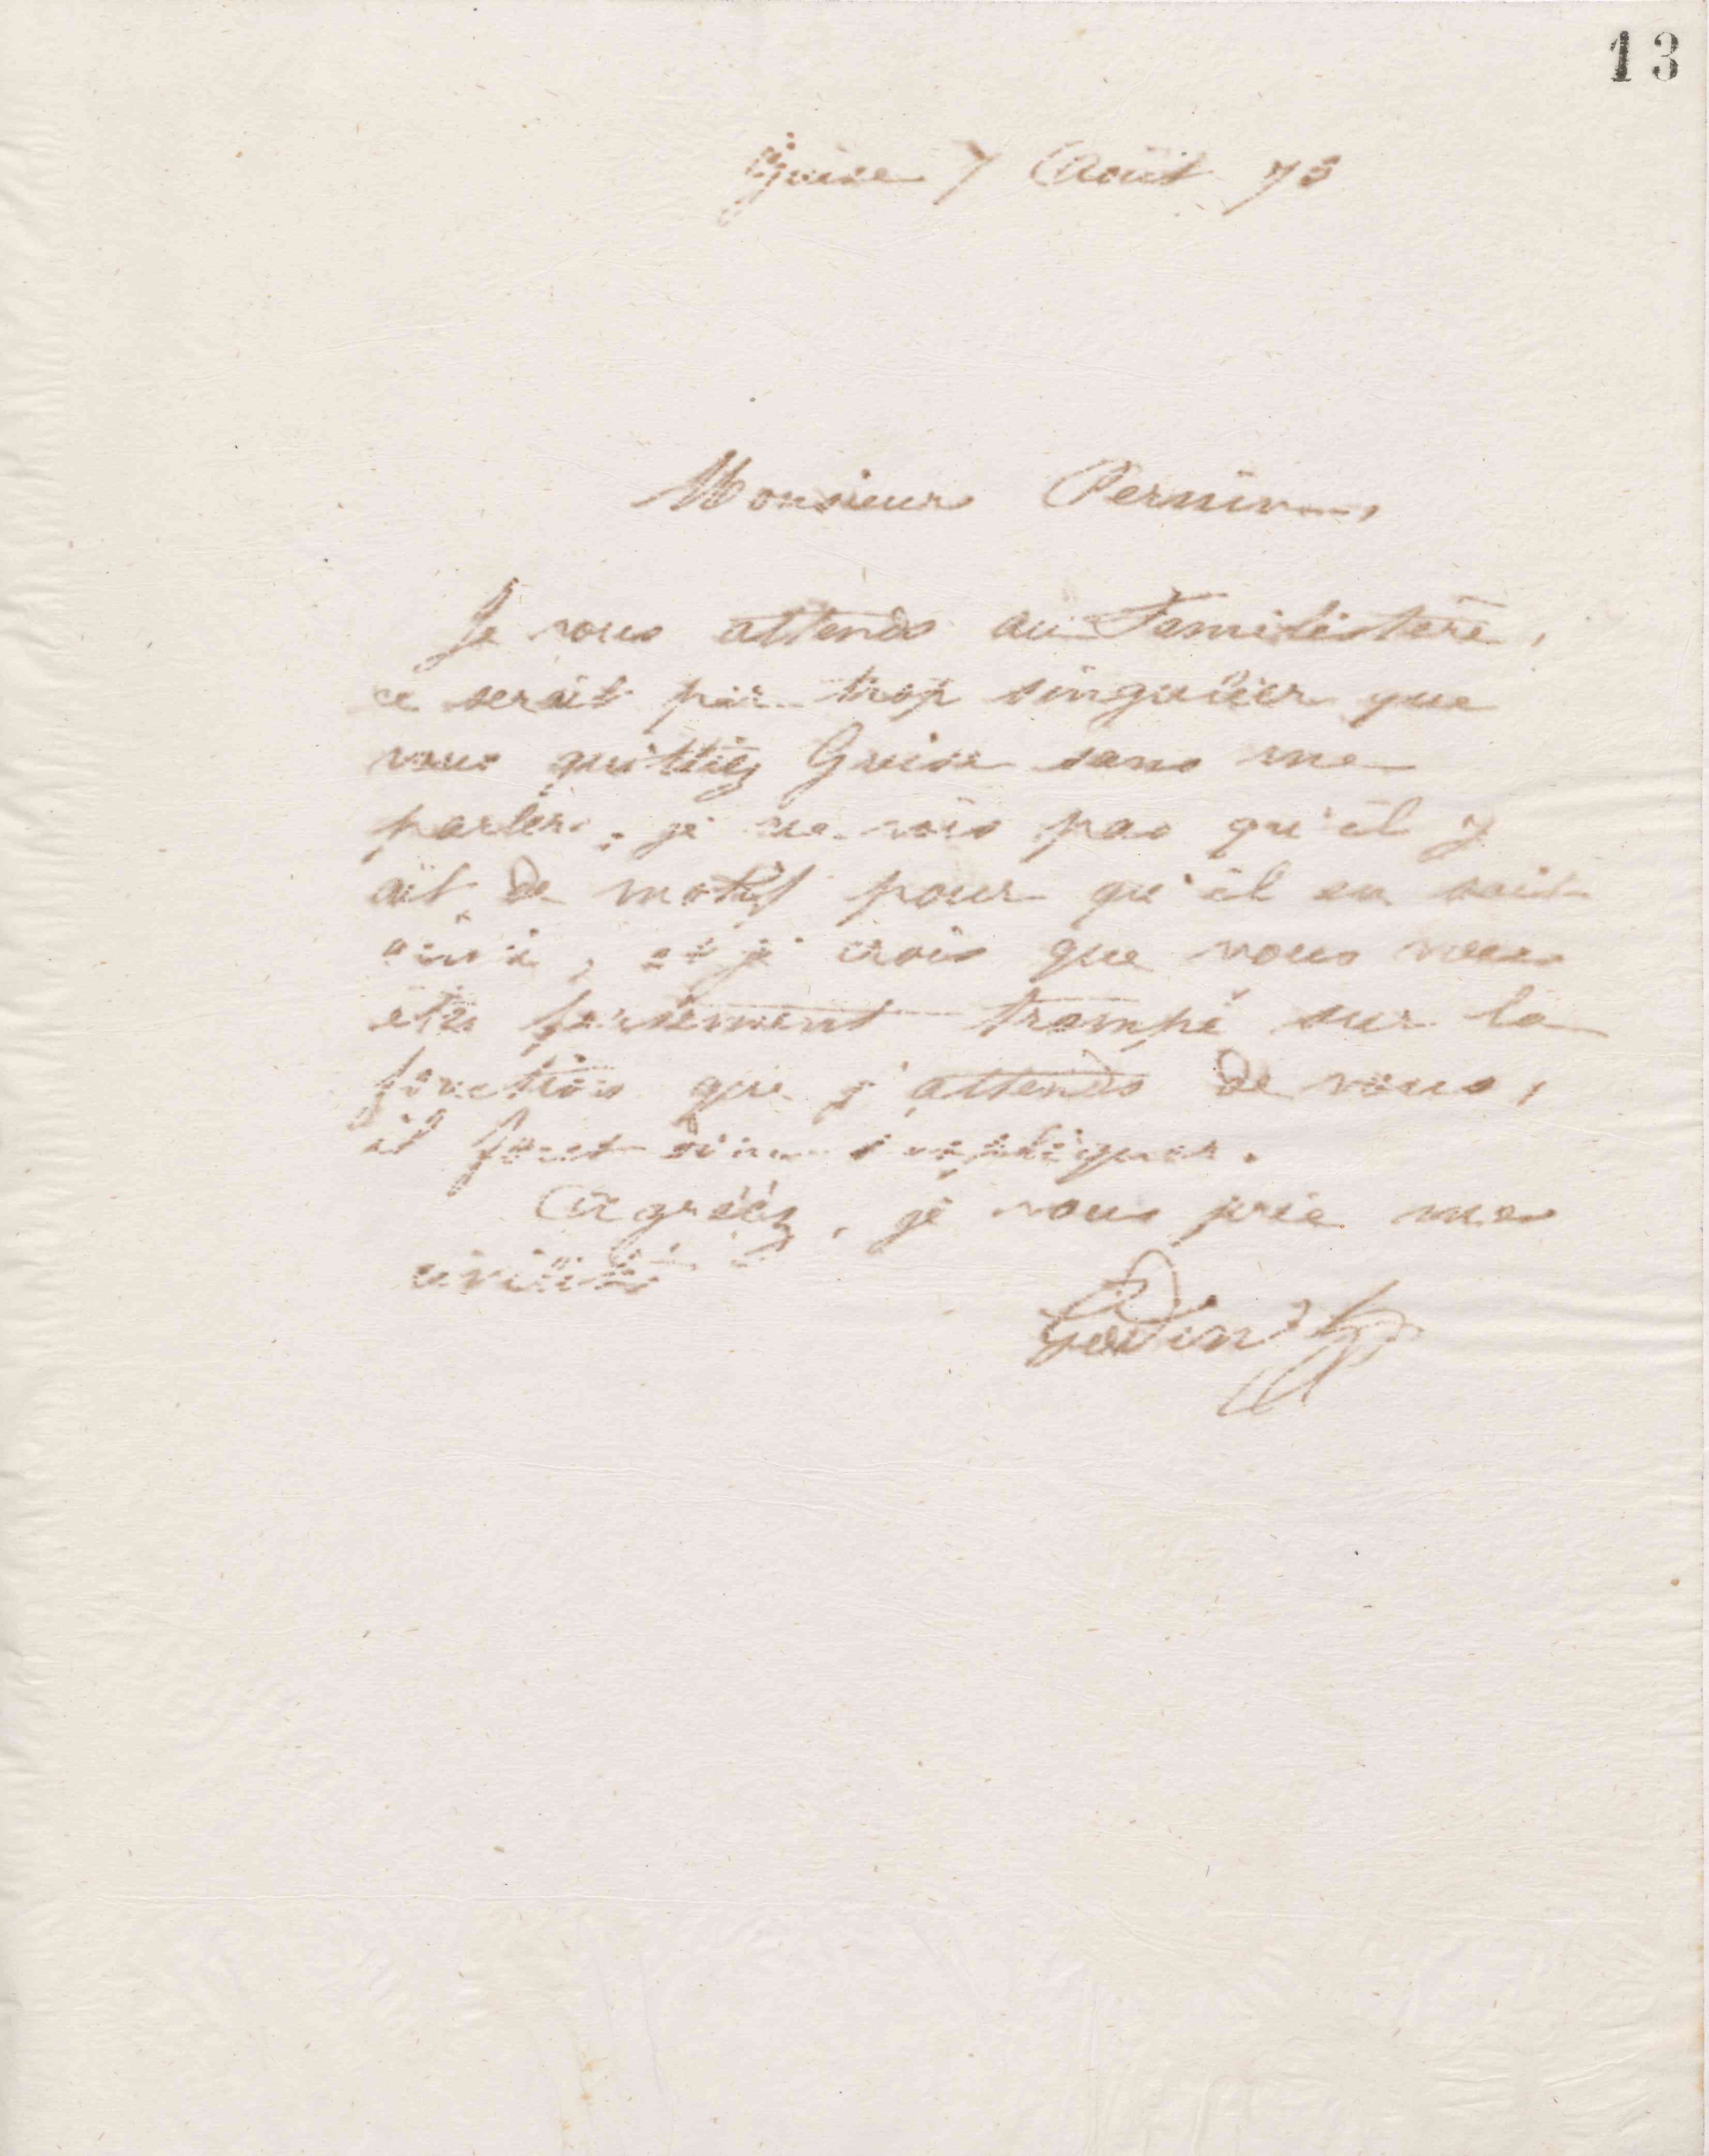 13
Guise 7 Août 73
Monsieur Pernin,
Je vous attends au Familistère,
ce serait par trop singulier que
vous quittiez Guise sans me
parler, je ne vois pas qu'il y
ait de motif pour qu'il en soit
ainsi, et je crois que vous vous
êtes fortement trompé sur la
fonction que j'attends de vous,
il faut s'expliquer.
Agréez, je vous prie mes
civilités
Godin